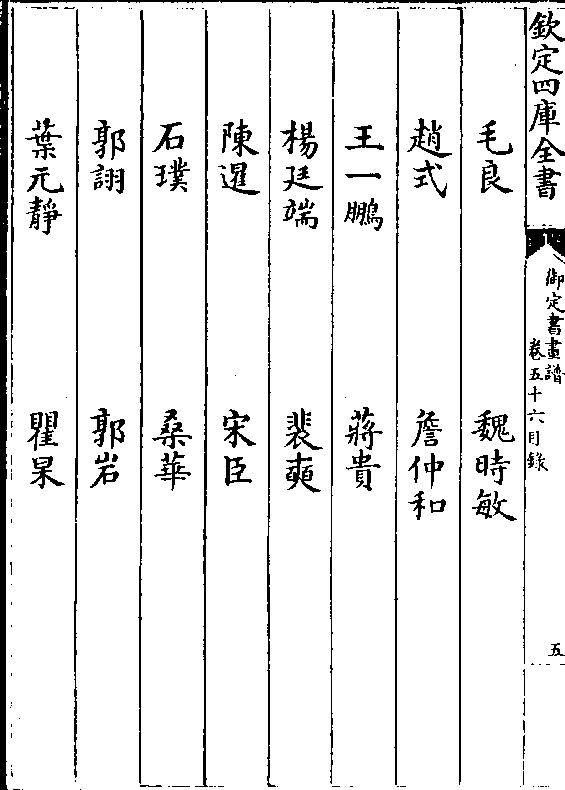 欽定四庫全書
御定書畫譜
卷五十六目錄
五
毛良 魏時敏
趙式 詹仲和
王一鵬 蔣貴
楊廷端 裴奭
陳暹 宋臣
石璞 桑華
郭詡 郭岩
葉元靜 瞿杲